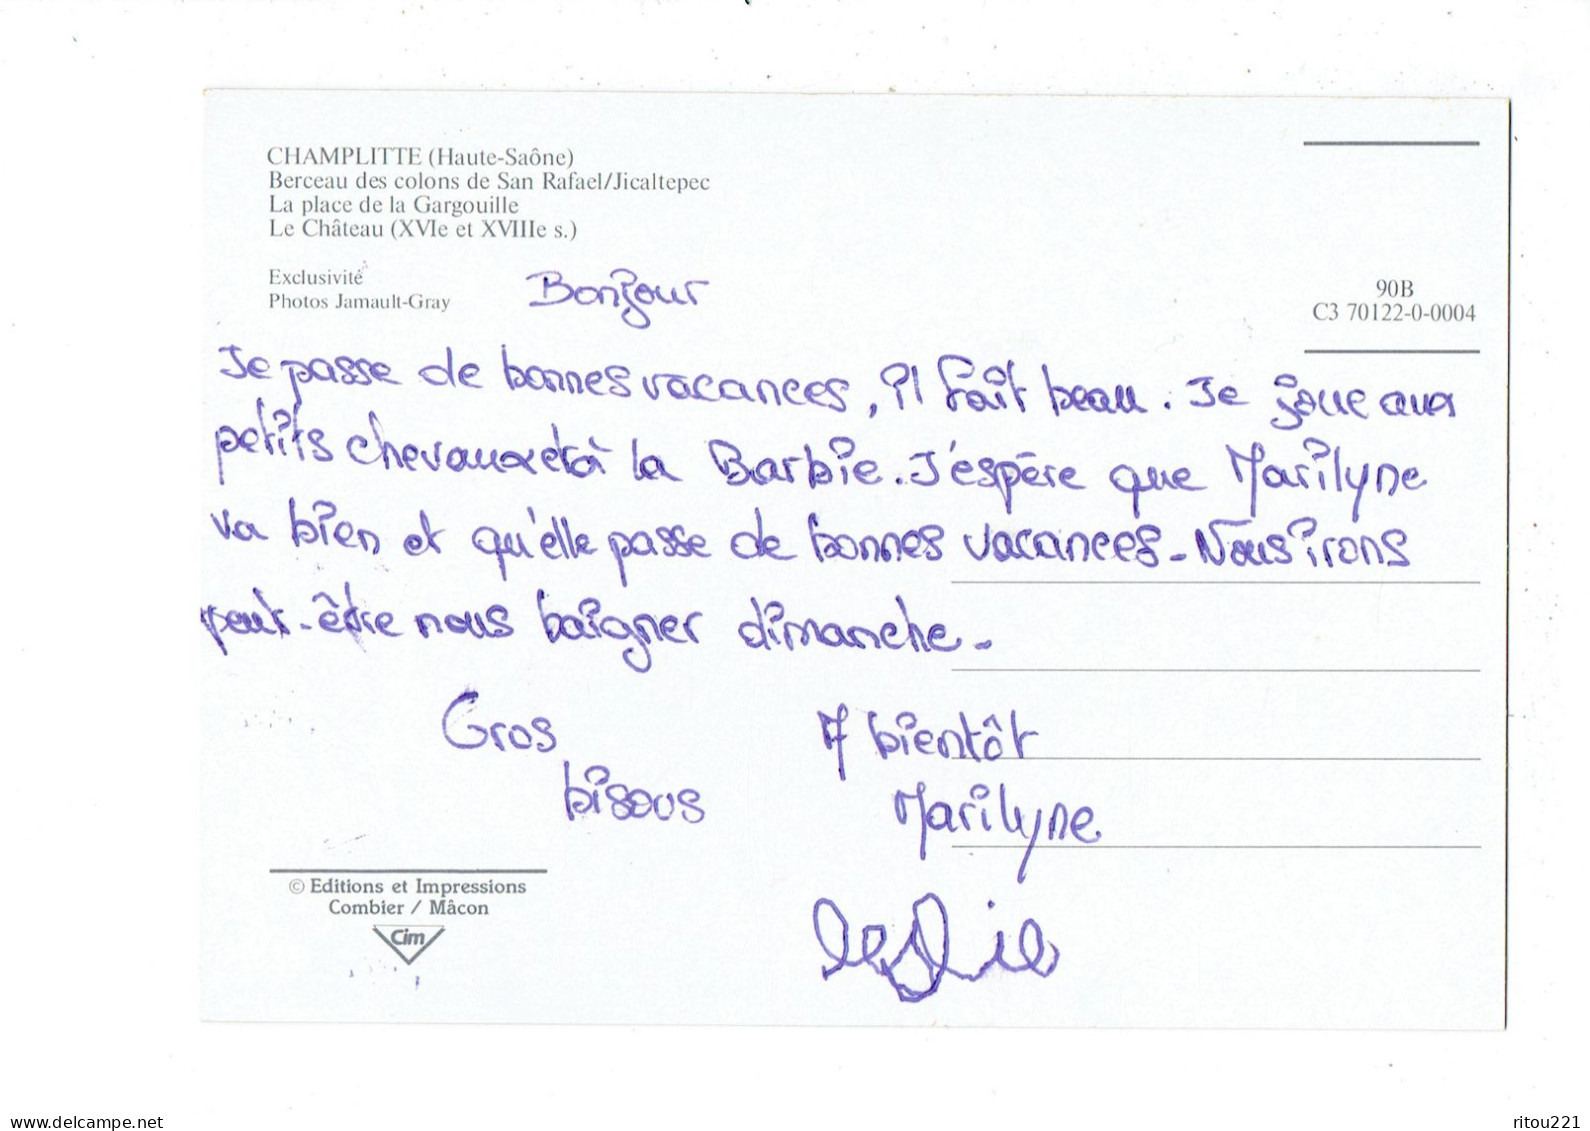 CHAMPLITTE (Haute-Saône)
Berceau des colons de San Rafael/Jicaltepec
La place de la Gargouille
Le Château (XVIe et XVIIIe s.)
Exclusivité
Photos Jamault-Gray
90B
C3 70122-0-0004
Bonjour
Je passe de bonnes vacances, il fait beau. Je joue aux
petits chevaux et à la Barbie. J'espère que Marilyne
va bien et qu'elle passe de bonnes vacances - Nous irons
peut-être nous baigner dimanche -
Gros
bisous
A bientôt
Marilyne
Leslie
© Editions et Impressions
Combier / Mâcon
Cim
www.delcampe.net
ritou221